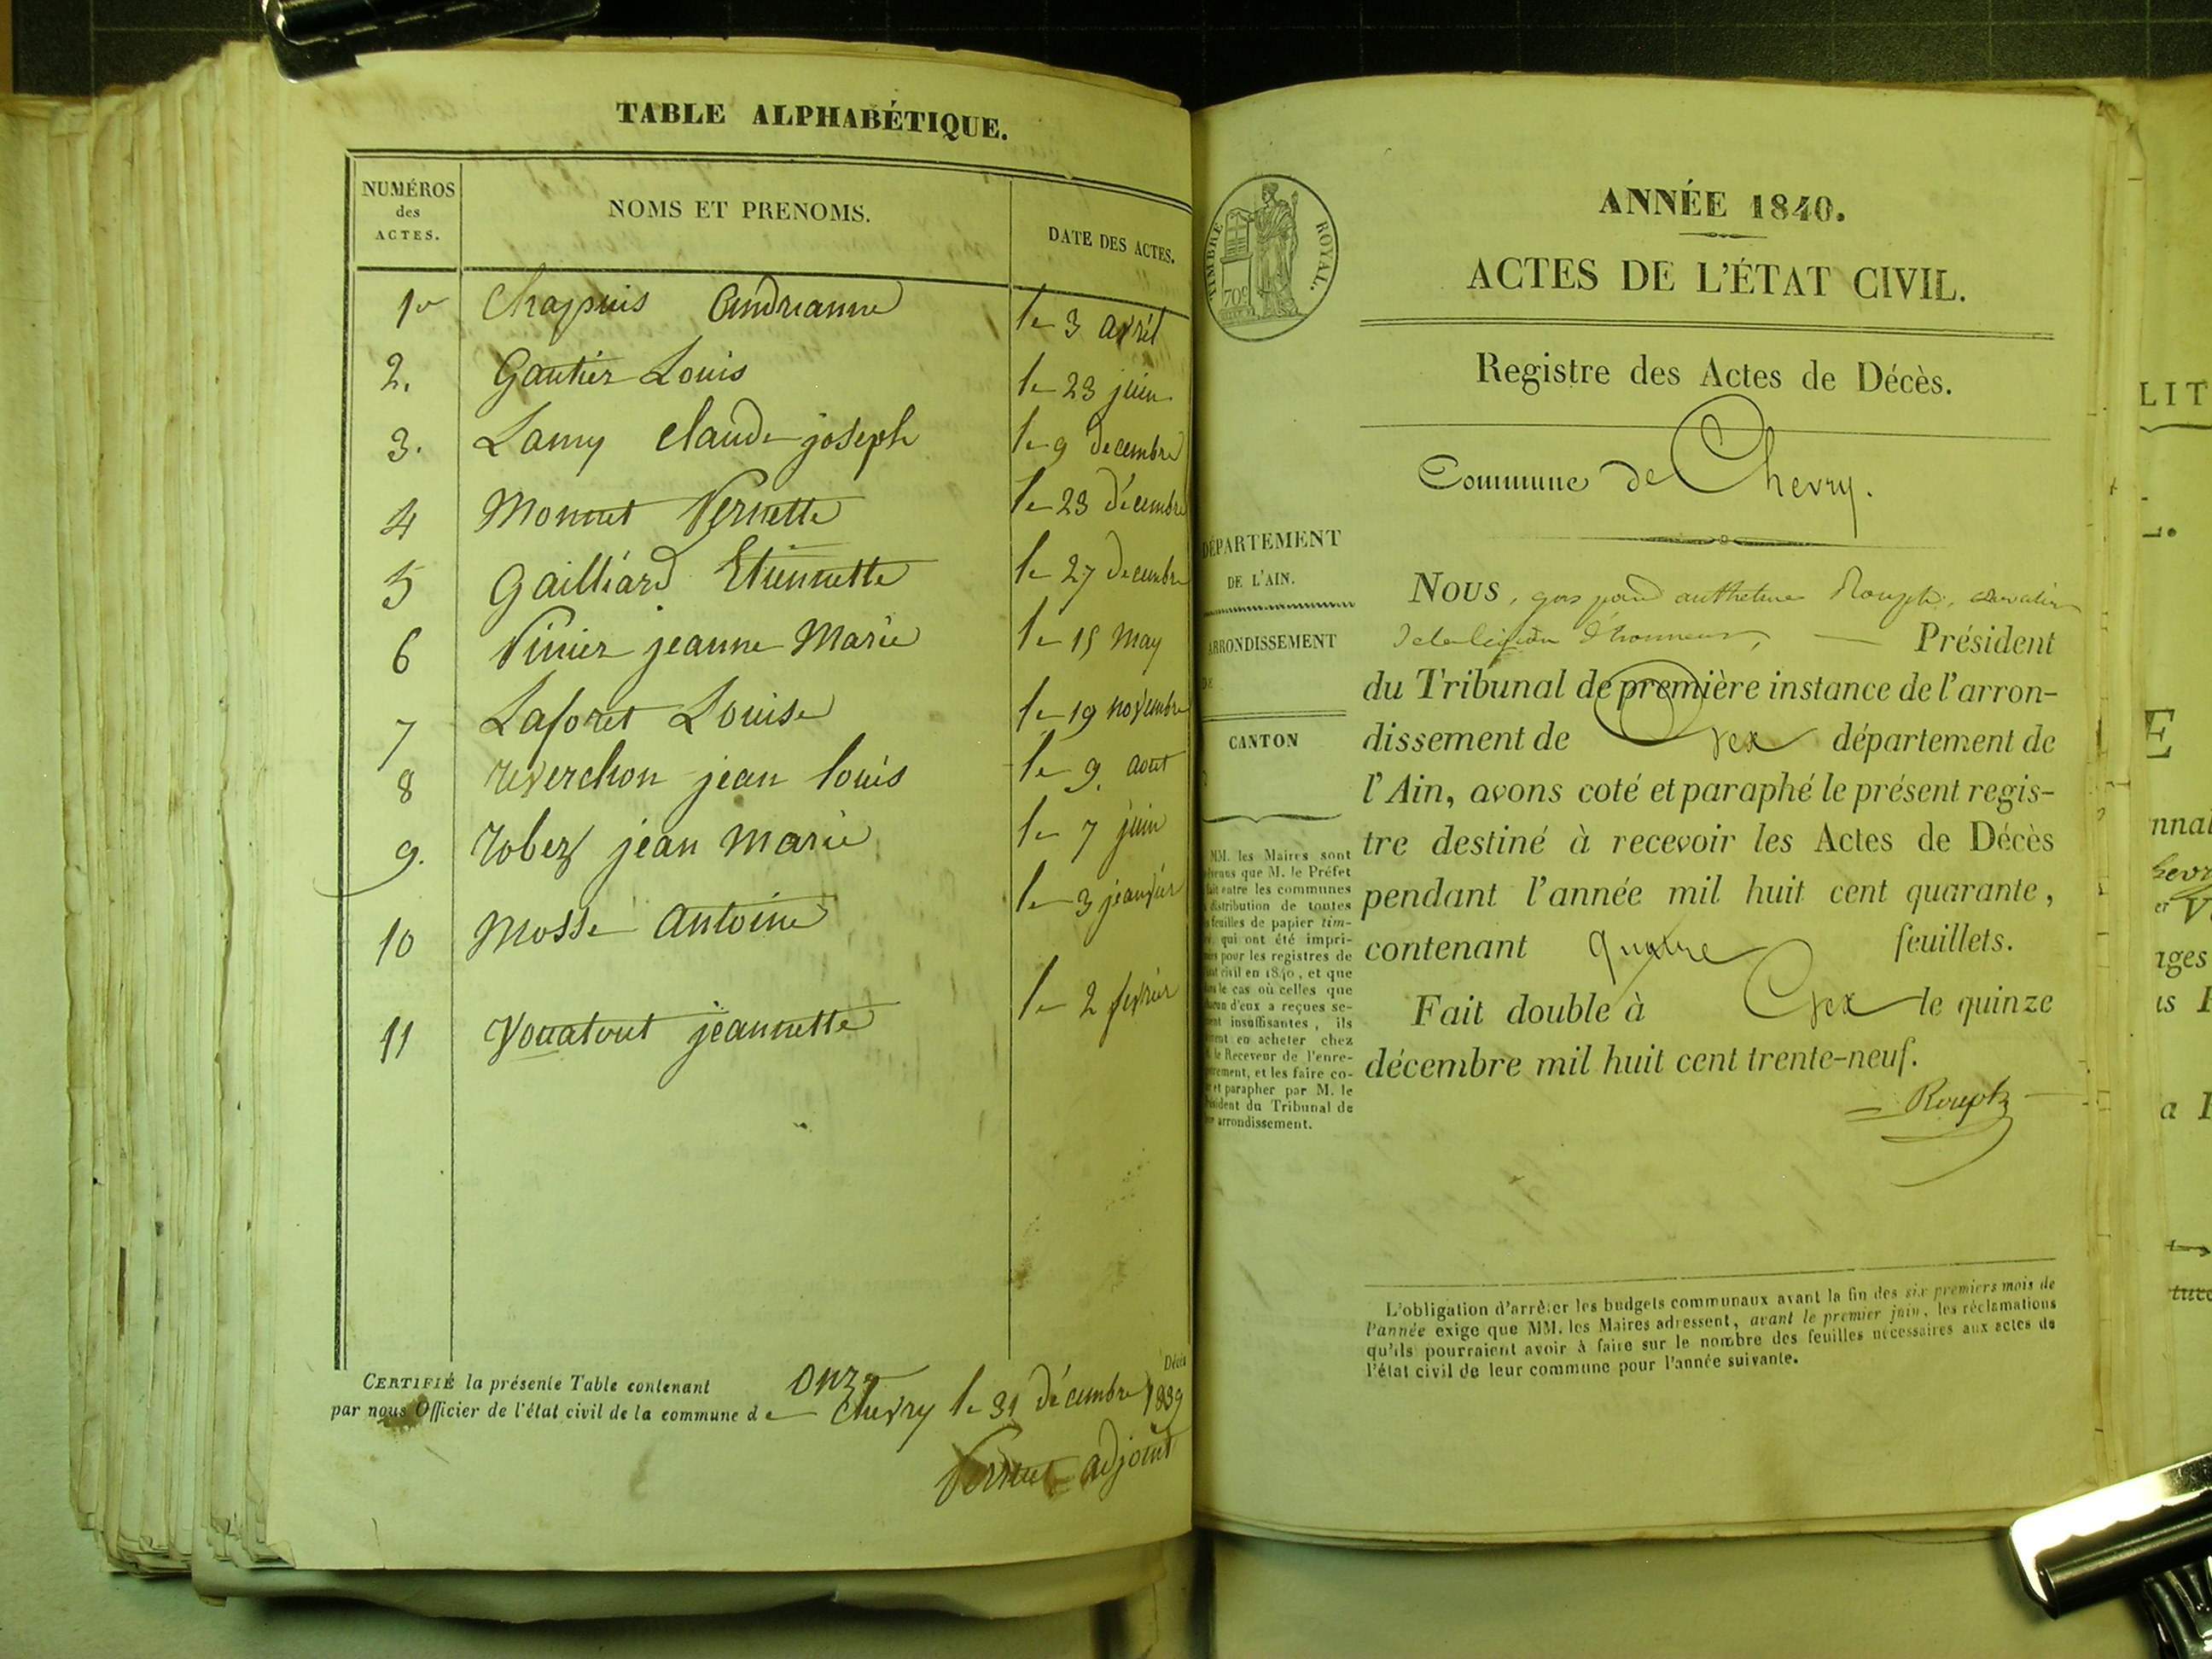 TABLE ALPHABÉTIQUE.
NUMÉROS
des
ACTES.
NOMS ET PRENOMS.
DATE DES ACTES.
1er Chappuis Andrianne le 3 avril
2. Gautier Louis le 23 juin
3. Lamy claude joseph le 9 decembre
4 Monnet Pernette le 23 décembre
5 Gailliard Etiennette le 27 decembre
6 Vinier jeanne Marie le 15 May
7 Laforet Louise le 19 novembre
8 reverchon jean louis le 9. aout
9. robez jean Marie le 7 juin
10 Mosse Antoine le 3 jeanvier
11 Vouatout jeannette le 2 fevrier
Décès
CERTIFIÉ la présente Table contenant onze
par nous Officier de l'état civil de la commune de Chevry le 31 décembre 1839
adjoint
TIMBRE ROYAL.
70c
ANNÉE 1840.
ACTES DE L'ÉTAT CIVIL.
Registre des Actes de Décès.
Commune de Chevry.
DÉPARTEMENT
DE L'AIN.
ARRONDISSEMENT
DE
CANTON
Nous, gaspard Rouph, chevalier
de la légion d'honneur, Président
du Tribunal de première instance de l'arron-
dissement de Gex département de
l'Ain, avons coté et paraphé le présent regis-
tre destiné à recevoir les Actes de Décès
pendant l'année mil huit cent quarante,
contenant quatre feuillets.
Fait double à Gex le quinze
décembre mil huit cent trente-neuf.
MM. les Maires sont
que M. le Préfet
fait entre les communes
distribution de toutes
feuilles de papier tim-
qui ont été impri-
pour les registres de
civil en 1840, et que
le cas où celles que
d'eux a reçues se-
insuffisantes, ils
en acheter chez
le Receveur de l'enre-
et les faire co-
et parapher par M. le
Président du Tribunal de
arrondissement.
L'obligation d'arrêter les budgets communaux avant la fin des six premiers mois de
l'année exige que MM. les Maires adressent, avant le premier juin, les réclamations
qu'ils pourraient avoir à faire sur le nombre des feuilles nécessaires aux actes de
l'état civil de leur commune pour l'année suivante.